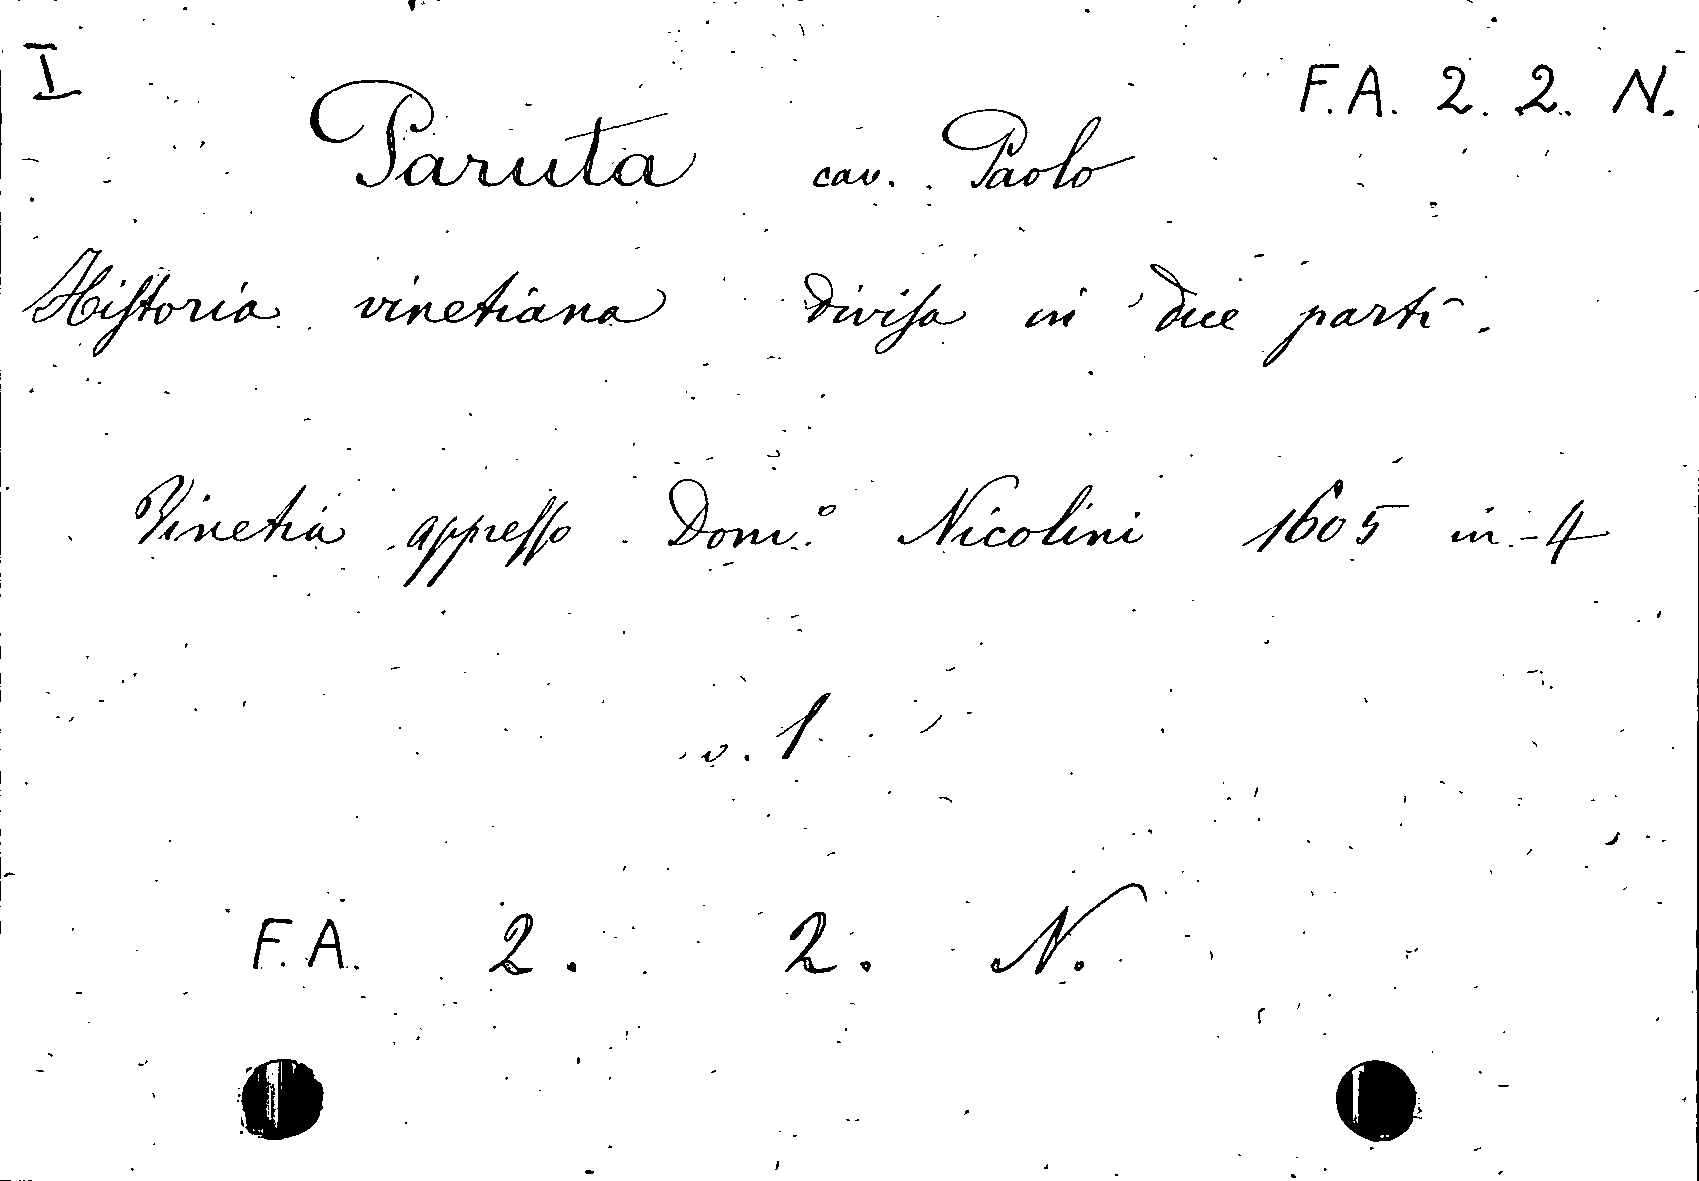 I
F.A. 2. 2. N.
Paruta cav. Paolo
Hiſtoria vinetiana diviſa in due parti.
Vinetia appreſſo Dom.º Nicolini 1605 in-4
v. 1
F.A. 2. 2. N.